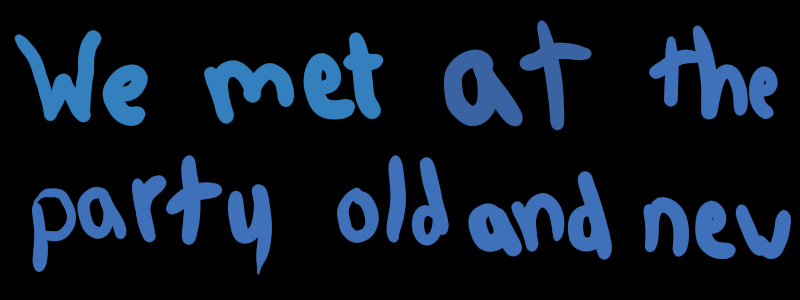 We met at the
party old and new